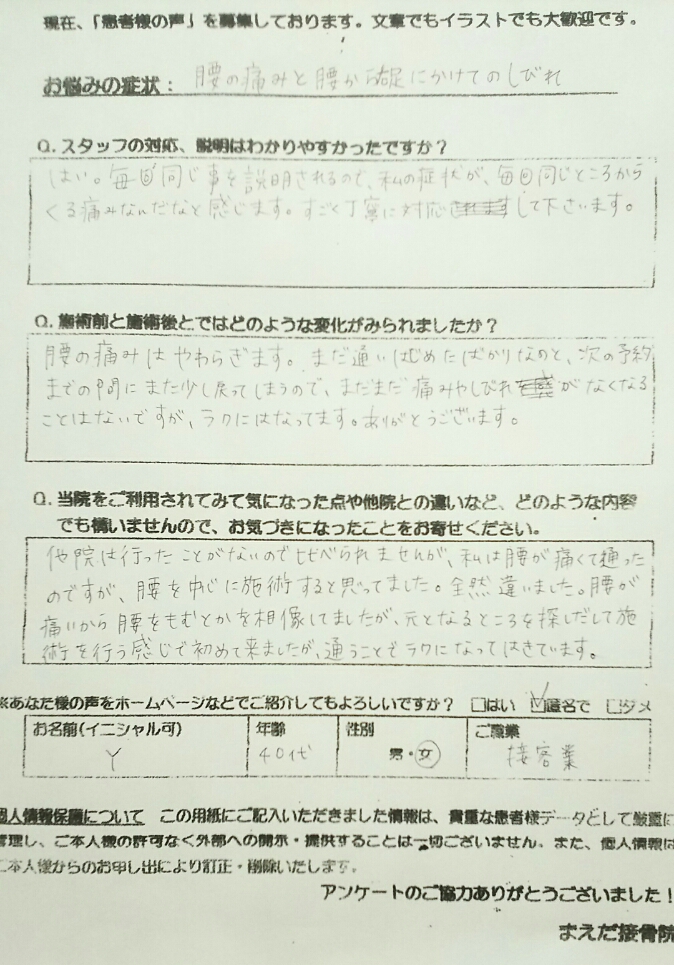 現在、「患者様の声」を募集しております。文章でもイラストでも大歓迎です。
お悩みの症状： 腰の痛みと腰から足にかけてのしびれ
Q. スタッフの対応、説明はわかりやすかったですか？
はい。毎回同じ事を説明されるので、私の症状が、毎回同じところから
くる痛みなんだなと感じます。すごく丁寧に対応して下さいます。
Q. 施術前と施術後とではどのような変化がみられましたか？
腰の痛みはやわらぎます。まだ通いはじめたばかりなのと、次の予約
までの間にまた少し戻ってしまうので、まだまだ痛みやしびれがなくなる
ことはないですが、ラクにはなってます。ありがとうございます。
Q. 当院をご利用されてみて気になった点や他院との違いなど、どのような内容
でも構いませんので、お気づきになったことをお寄せください。
他院は行ったことがないので比べられませんが、私は腰が痛くて通った
のですが、腰を中心に施術すると思ってました。全然違いました。腰が
痛いから腰をもむとかを相像してましたが、元となるところを探しだして施
術を行う感じで初めて来ましたが、通うことでラクになってはきています。
※あなた様の声をホームページなどでご紹介してもよろしいですか？ □はい ☑匿名で □ダメ
お名前(イニシャル可) 年齢 性別 ご職業
Y 40代 男・女 接客業
個人情報保護について この用紙にご記入いただきました情報は、貴重な患者様データとして厳重に
管理し、ご本人様の許可なく外部への開示・提供することは一切ございません。また、個人情報は
ご本人様からのお申し出により訂正・削除いたします。
アンケートのご協力ありがとうございました！
まえだ接骨院